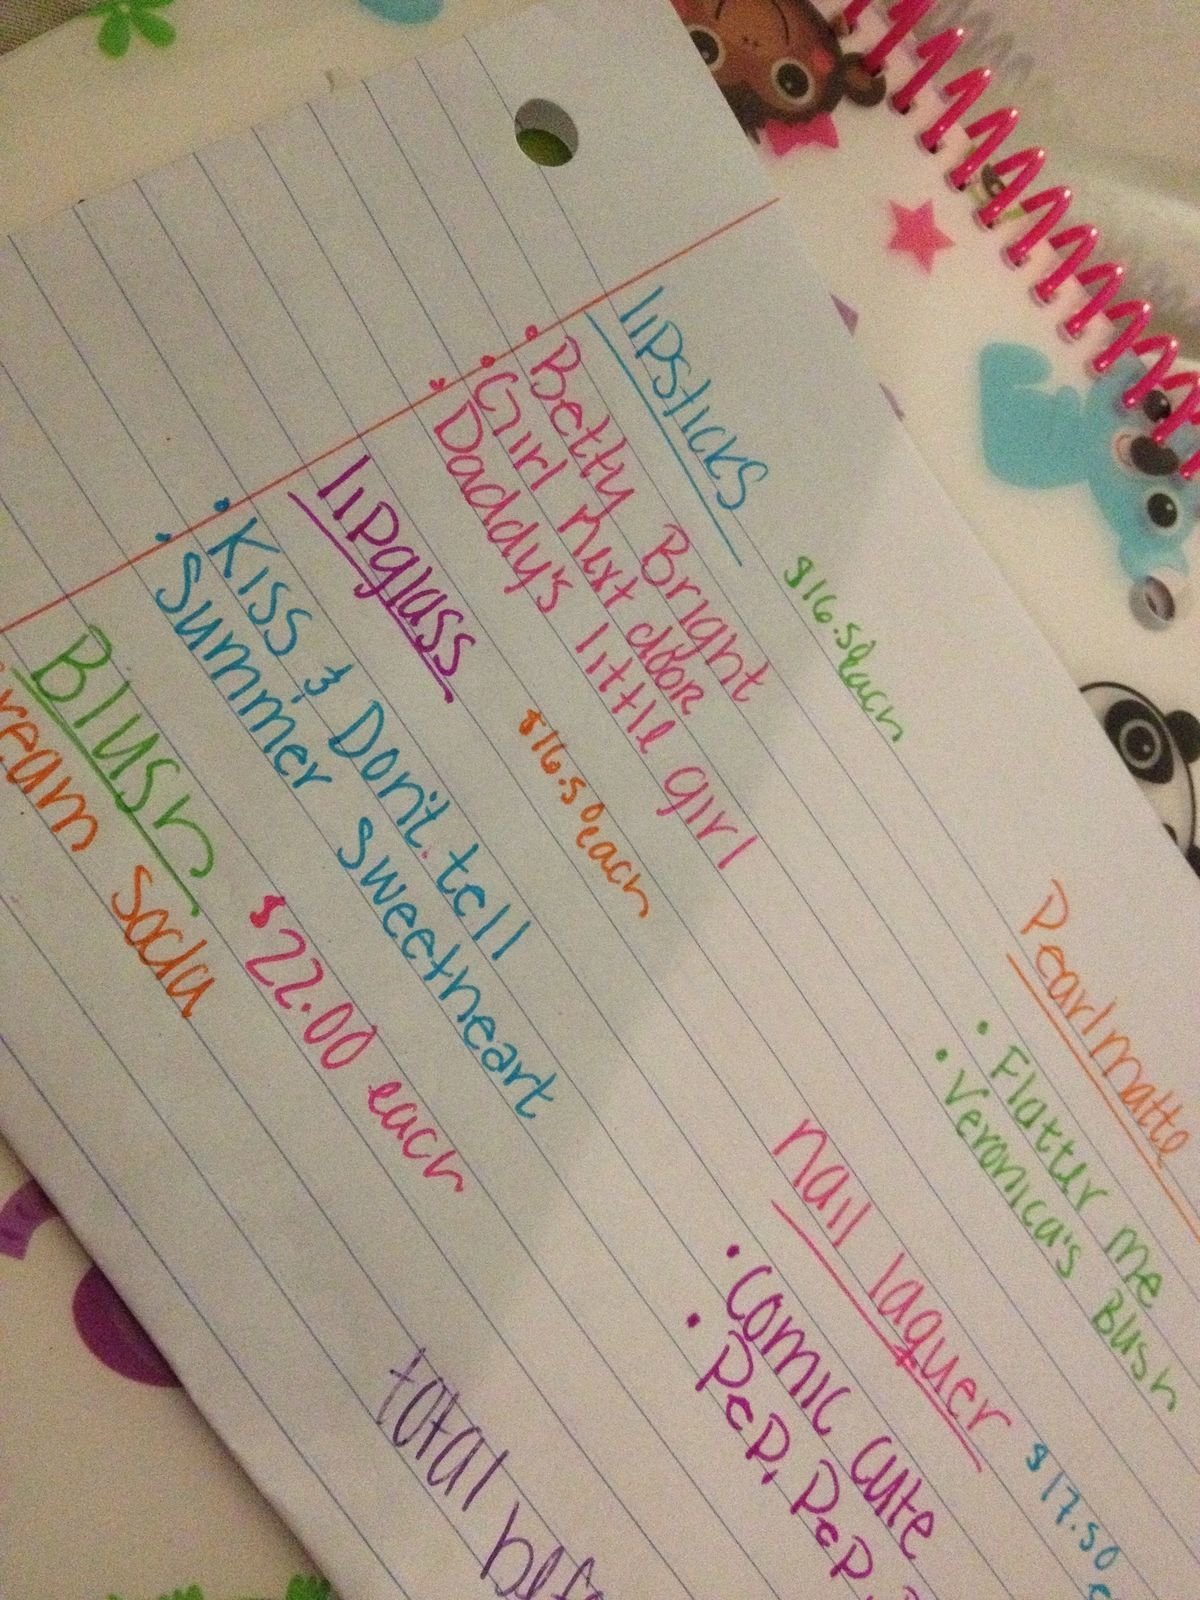 lipsticks $16.50 each
• Betty Bright
• Girl next door
• Daddy's little girl
lipglass $16.50 each
• Kiss & Don't tell
• Summer sweetheart
Blush $22.00 each
soda
Pearlmatte
• Flatter me
• Veronica's Blush
nail laquer $17.50
• Comic cute
• Pep, Pep,
total